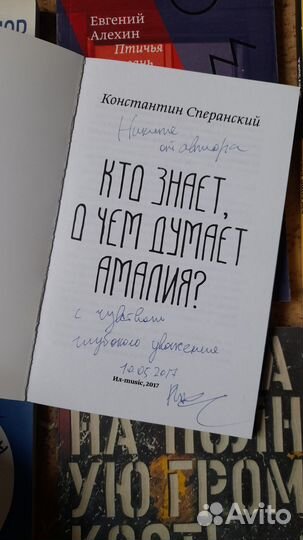 Евгений
Алехин
Птичья
Константин Сперанский
Никите
от автора
КТО ЗНАЕТ,
О ЧЕМ ДУМАЕТ
АМАЛИЯ?
с чувством
глубокого уважения
10.05.2017
Ил-music, 2017
НА ПОЛН
УЮ ГРОМ
КОСТЬ
Avito